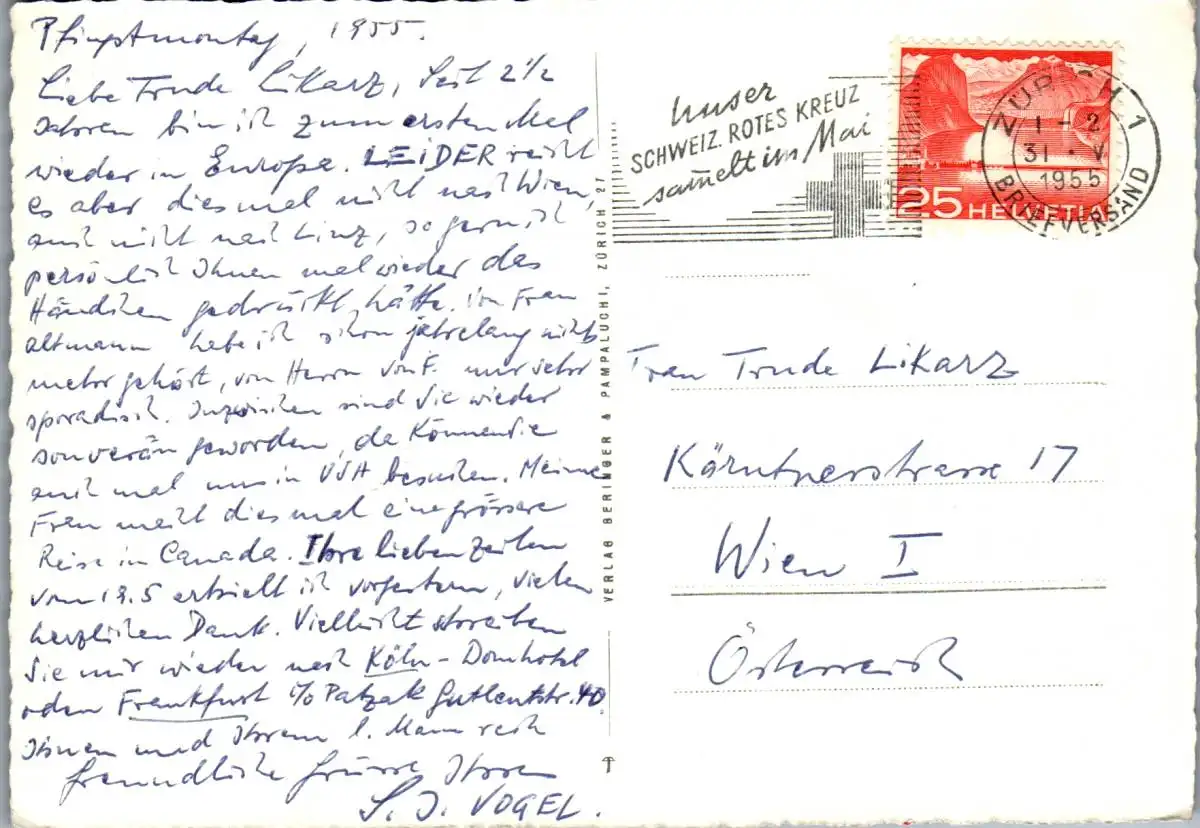 Pfingstmontag, 1955.
Liebe Trude Likarz, Seit 2 1/2
Jahren bin ich zum ersten Mal
wieder in Europa. LEIDER reicht
es aber diesmal nicht nach Wien,
auch nicht nach Linz, so gern ich
persönlich Ihnen mal wieder das
Händchen gedrückt hätte. Von Frau
Altmann habe ich schon jahrelang nichts
mehr gehört, von Herrn von F. nur sehr
sporadisch. Inzwischen sind Sie wieder
souverän geworden, da können Sie
auch mal uns in USA besuchen. Meine
Frau macht diesmal eine grössere
Reise in Canada. Ihre lieben Zeilen
vom 19.5 erhielt ich vorgestern, vielen
herzlichen Dank. Vielleicht schreiben
Sie mir wieder nach Köln - Domhotel
oder Frankfurt c/o Patzak Gutleutstr. 40.
Ihnen und Ihrem l. Mann recht
freundliche Grüsse Ihres
S. J. VOGEL.
VERLAG BERINGER & PAMPALUCHI, ZÜRICH 27
Unser
SCHWEIZ. ROTES KREUZ
sammelt im Mai
25 HELVETIA
ZÜRICH 1
1 - 2
31 · V
1955
BRIEFVERSAND
Frau Trude Likarz
Kärntnerstrasse 17
Wien I
Österreich